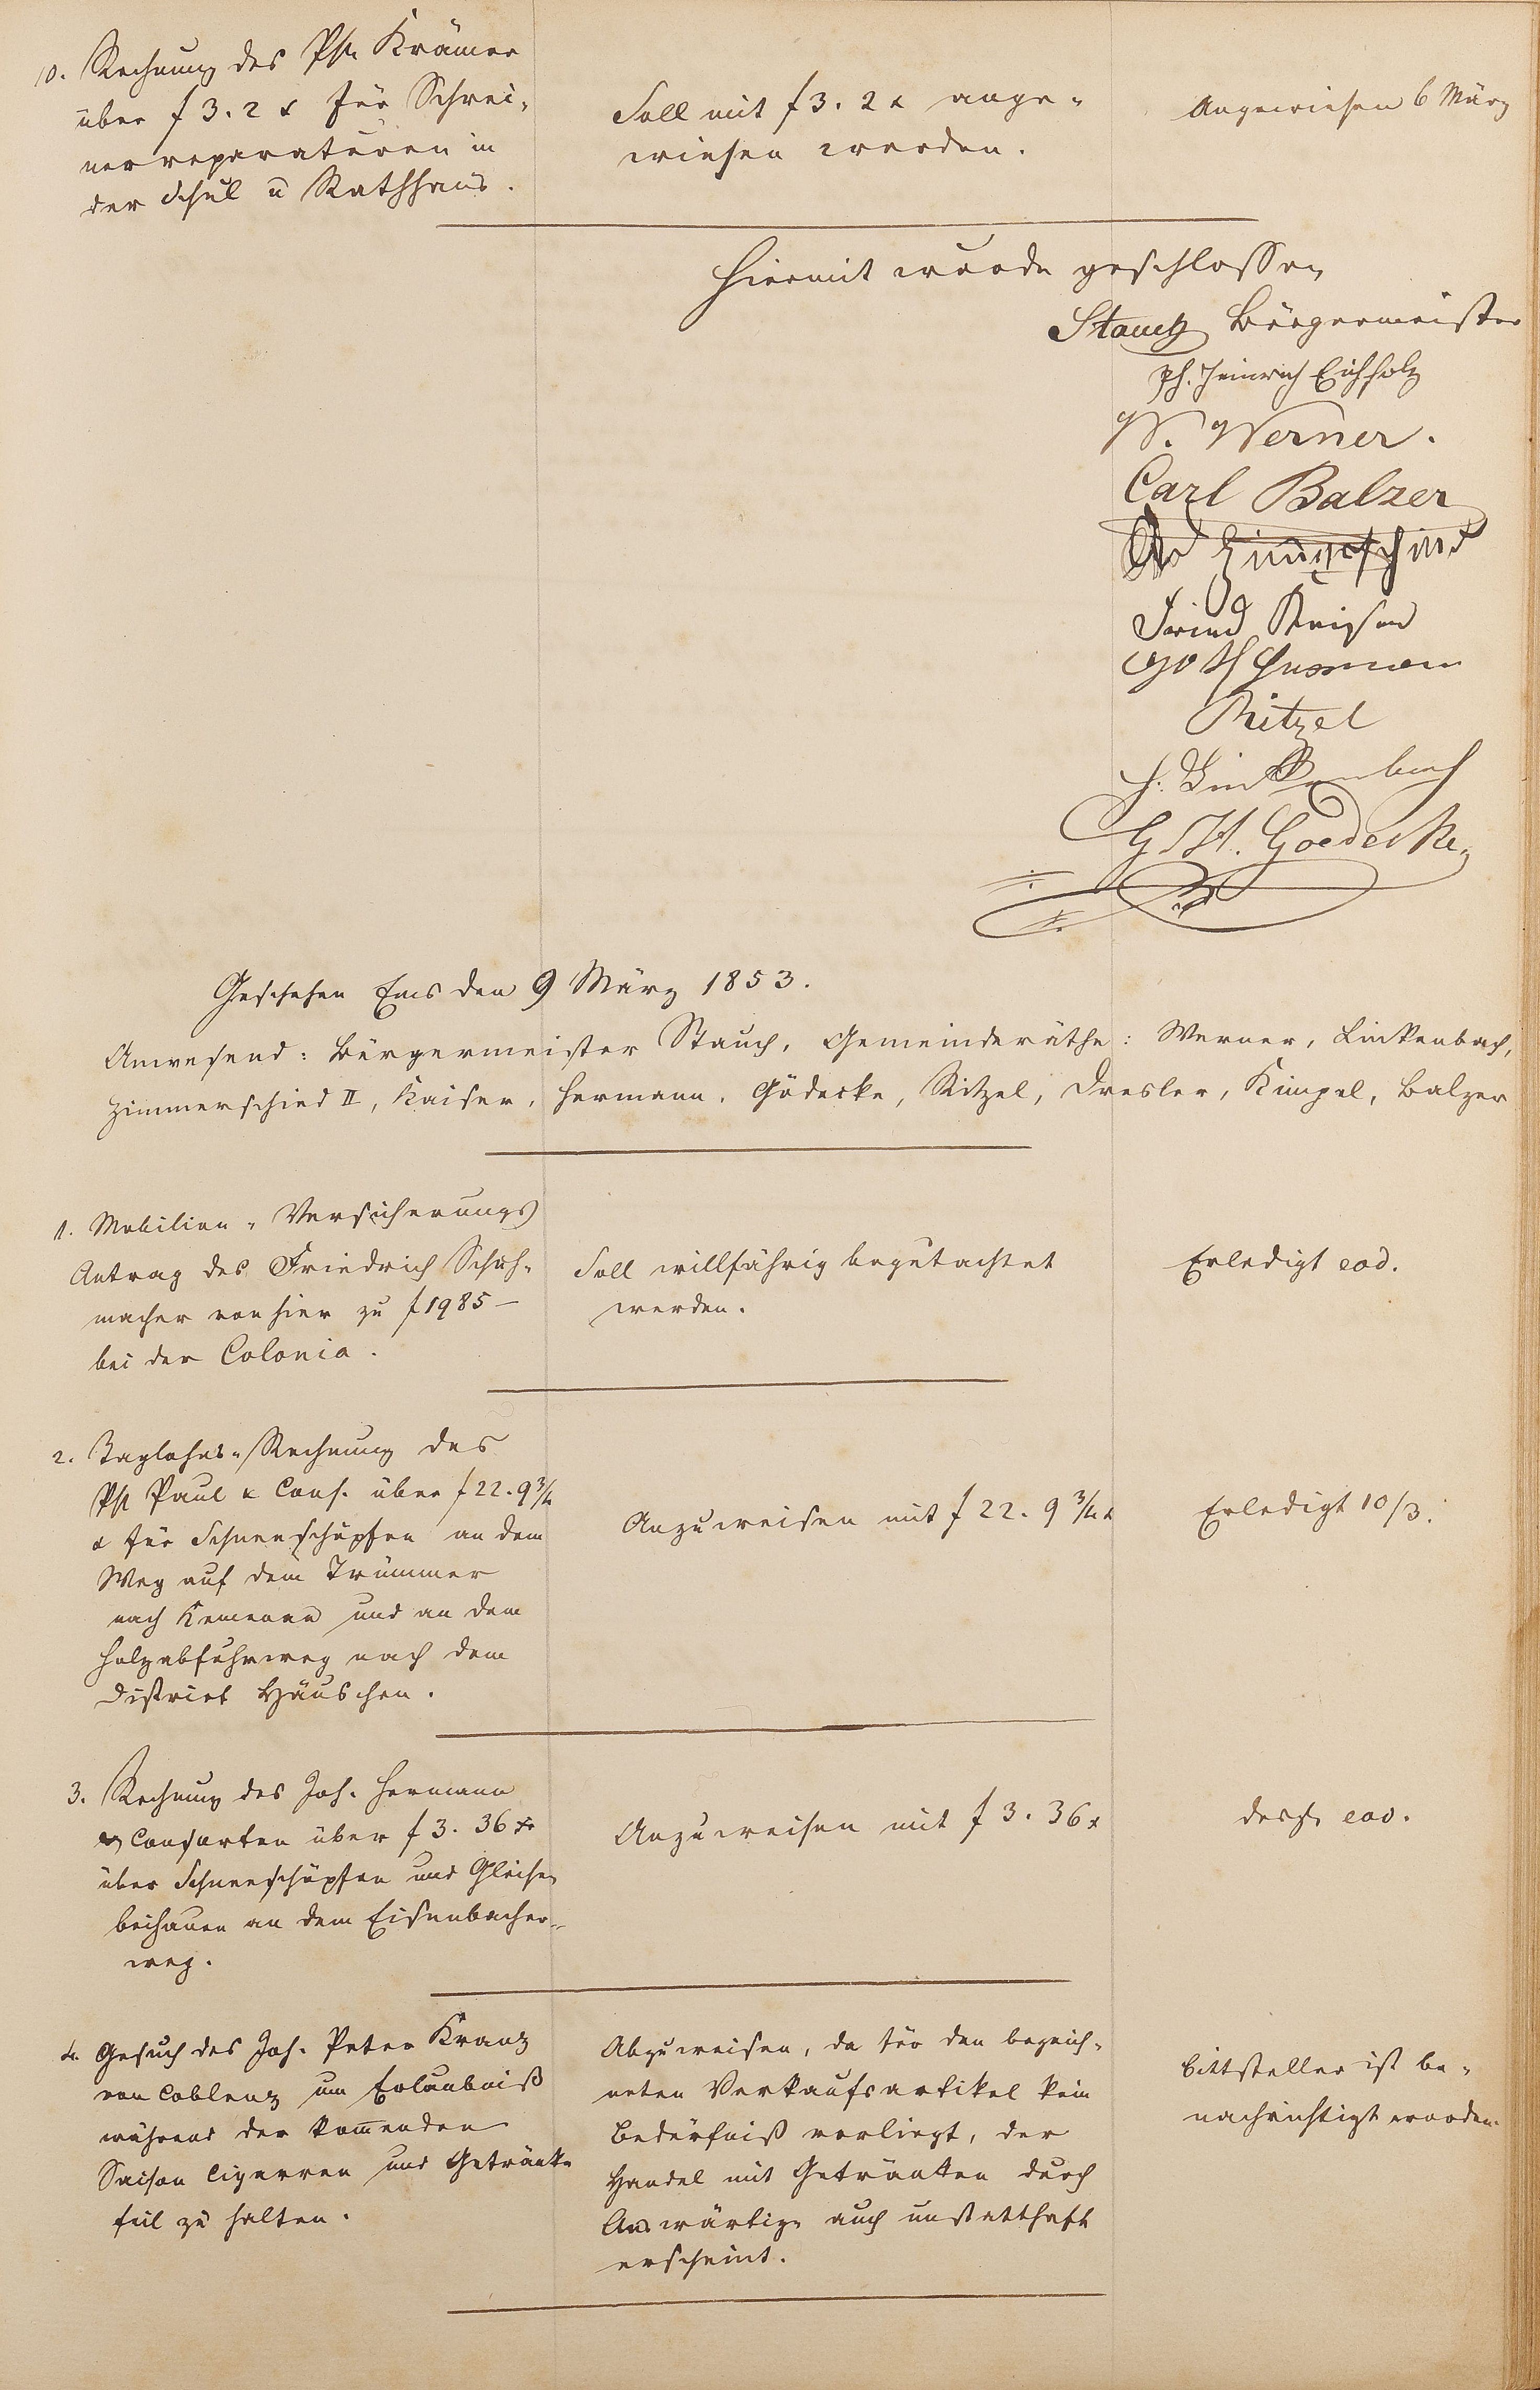 10. Rechnung des Ph. Krämer
über f 3. 2 x für Schrei-
nerreparaturen in
der Schul u Rathhaus.
Soll mit f 3. 2 x ange-
wiesen werden.
Angewiesen 6 März
Hiermit wurde geschlossen
Stauch Bürgermeister
Ph. Heinrich Eichholz
W. Werner.
Carl Balzer
Zimmerschied
Kaiser
Hermann
Ritzel
H. Linkenbach
G. H. Goedecke
Geschehen Ems den 9 März 1853.
Anwesend: Bürgermeister Stauch, Gemeinderäthe: Werner, Linkenbach,
Zimmerschied II, Kaiser, Hermann, Gödecke, Ritzel, Dresler, Kimpel, Balzer
1. Mobilien-Versicherungs
Antrag des Friedrich Schuh-
macher von hier zu f 1985 –
bei der Colonia.
Soll willfährig begutachtet
werden.
Erledigt eod.
2. Taglohns-Rechnung des
Ph Paul & Cons. über f 22. 9 3/4
x für Schneeschüpfen an dem
Weg auf dem Trümmer
nach Kemenau und an dem
Holzabfuhrweg nach dem
District Häuschen.
Anzuweisen mit f 22. 9 3/4 x
Erledigt 10/3.
3. Rechnung des Joh. Hermann
& Consorten über f 3. 36 xr
über Schneeschüpfen und Gleise
beihauen an dem Eisenbacher-
weg.
Anzuweisen mit f 3. 36 x
desgl. eod.
4. Gesuch des Joh. Peter Kranz
von Coblenz um Erlaubniß
während der kom̅enden
Saison Cigarren und Getränke
feil zu halten.
Abzuweisen, da für den bezeich-
neten Verkaufsartikel kein
Bedürfniß vorliegt, der
Handel mit Getränken durch
Auswärtige auch unstatthaft
erscheint.
Bittsteller ist be-
nachrichtigt worden.